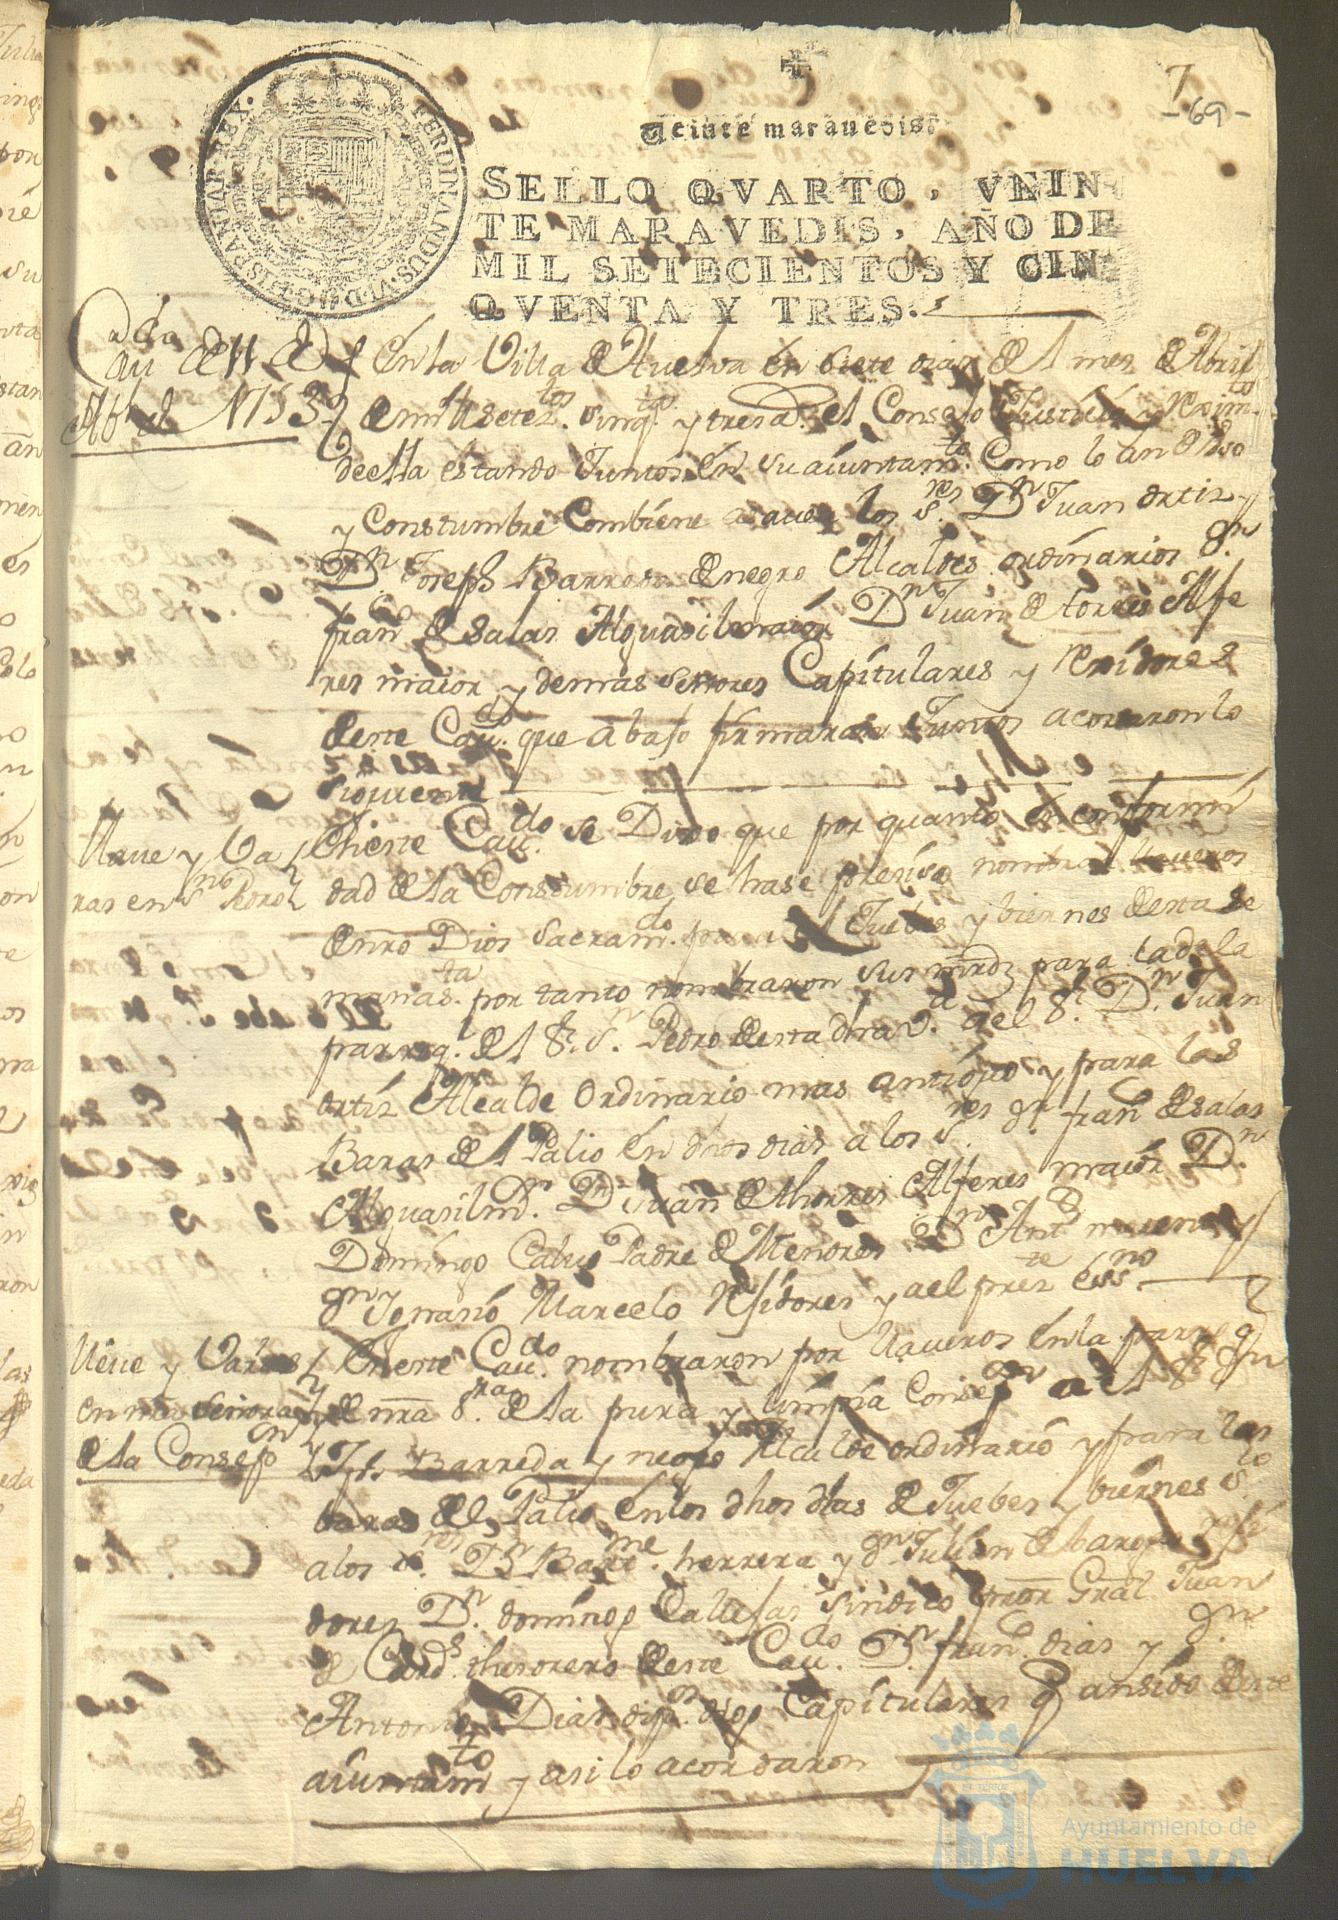 7
-69-
Veinte maravedis.
SELLO QVARTO, VEIN-
TE MARAVEDIS, AÑO DE
MIL SETECIENTOS Y CIN-
QVENTA Y TRES.
FERDINANDUS.VI.D.G.HISPANIAR.REX.
Cau de 11 de
Abril 1753
En la Villa de Huelva en siete dias del mes de Abril
de mill setez.tos sinq.ta y tres a.s el Consejo Justicia y Reximto
de ella estando Juntos en su aiuntam.to Como lo an de Uso
y Constumbre Combiene a saver los s.res Dn Juan ortiz y
Dn Joseph Barreda negro Alcaldes ordinarios Dn
fran.co de salas Alguasil maior Dn Juan de torres Alfe
res maior y demas señores Capitulares y Rexidores
deeste Cau.do que abajo firmaran Juntos acordaron lo
siguiente
Llave y Va
ras en Sn Pedro
En este Cau.do se Dixo que por quanto en conformi
dad de la Constumbre se hase presiso nombrar llaveros
de nro Dios Sacram.do para el Juebes y biernes de esta se
mana s.ta por tanto nombraron sus mrds para la de la
parroq.l del Sr. Sn Pedro de esta dha v.a a el Sr. Dn Juan
ortiz Alcalde Ordinario mas antiguo y para las
Baras de el Palio en dhos dias a los s.res Dn fran.co de salas
Alguasil m.r Dn Juan de thorres Alferes maior Dn
Domingo Calvo Padre de Menores Dn Ant.o moreno y
Dn Ygnasio Marcelo Rejidores y a el pres.te Essno
Lleve y Varas
en nra señora
de la Consepn
En este Cau.do nombraron por llaveros en la parroq.l
de nra S.ra de la pura y limpia Consepn a el Sr Dn
Jph Barreda y negro Alcalde ordinario y para las
baras del Palio en los dhos dias de Juebes y biernes s.to
a los s.res Dn Barme. herrera y Dn Julian de barefo Reji
dores Dn. domingo Callejas sindico pror Gral Juan
de Cord.s thusorero de este Cau.do Dn fran.co dias y Dn
Antonio Dias dip.on Capitulares q ansido de este
aiuntam.to y asi lo acordaron
Ayuntamiento de
HUELVA